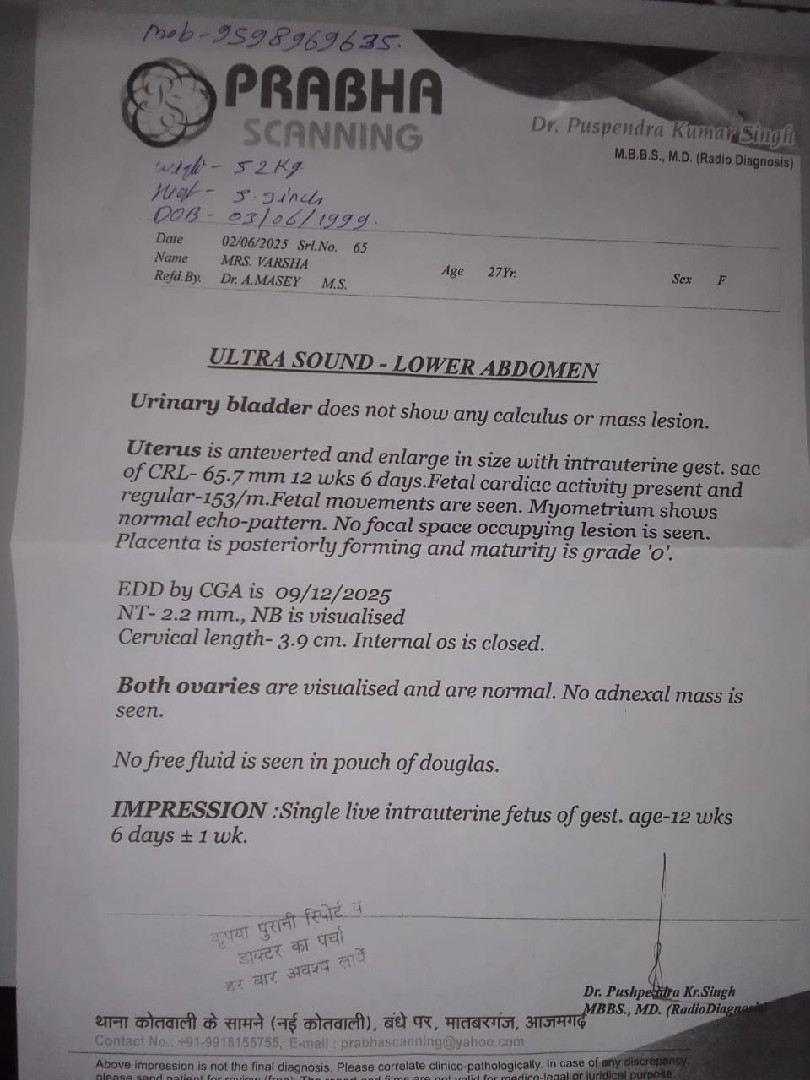 mob-9598969635.
PRABHA
SCANNING
Dr. Puspendra Kumar Singh
M.B.B.S., M.D. (Radio Diagnosis)
52 Kg
DOB - 03/06/1999.
Date 02/06/2025 Srl.No. 65
Name MRS. VARSHA Age 27Yr. Sex F
Refd.By. Dr. A.MASEY M.S.
ULTRA SOUND - LOWER ABDOMEN
Urinary bladder does not show any calculus or mass lesion.
Uterus is anteverted and enlarge in size with intrauterine gest. sac
of CRL- 65.7 mm 12 wks 6 days.Fetal cardiac activity present and
regular-153/m.Fetal movements are seen. Myometrium shows
normal echo-pattern. No focal space occupying lesion is seen.
Placenta is posteriorly forming and maturity is grade 'o'.
EDD by CGA is 09/12/2025
NT- 2.2 mm., NB is visualised
Cervical length- 3.9 cm. Internal os is closed.
Both ovaries are visualised and are normal. No adnexal mass is
seen.
No free fluid is seen in pouch of douglas.
IMPRESSION :Single live intrauterine fetus of gest. age-12 wks
6 days ± 1 wk.
कृपया पुरानी रिपोर्ट व
डाक्टर का पर्चा
हर बार अवश्य लावें
Dr. Pushpendra Kr.Singh
MBBS., MD. (RadioDiagnosis)
थाना कोतवाली के सामने (नई कोतवाली), बंधे पर, मातबरगंज, आजमगढ़
Contact No.: +91-9918155755, E-mail : prabhascanning@yahoo.com
Above impression is not the final diagnosis. Please correlate clinico-pathologically. in case of any discrepancy,
please send patient for review (free). The report and films are not valid for medico-legal or juridical purpose.